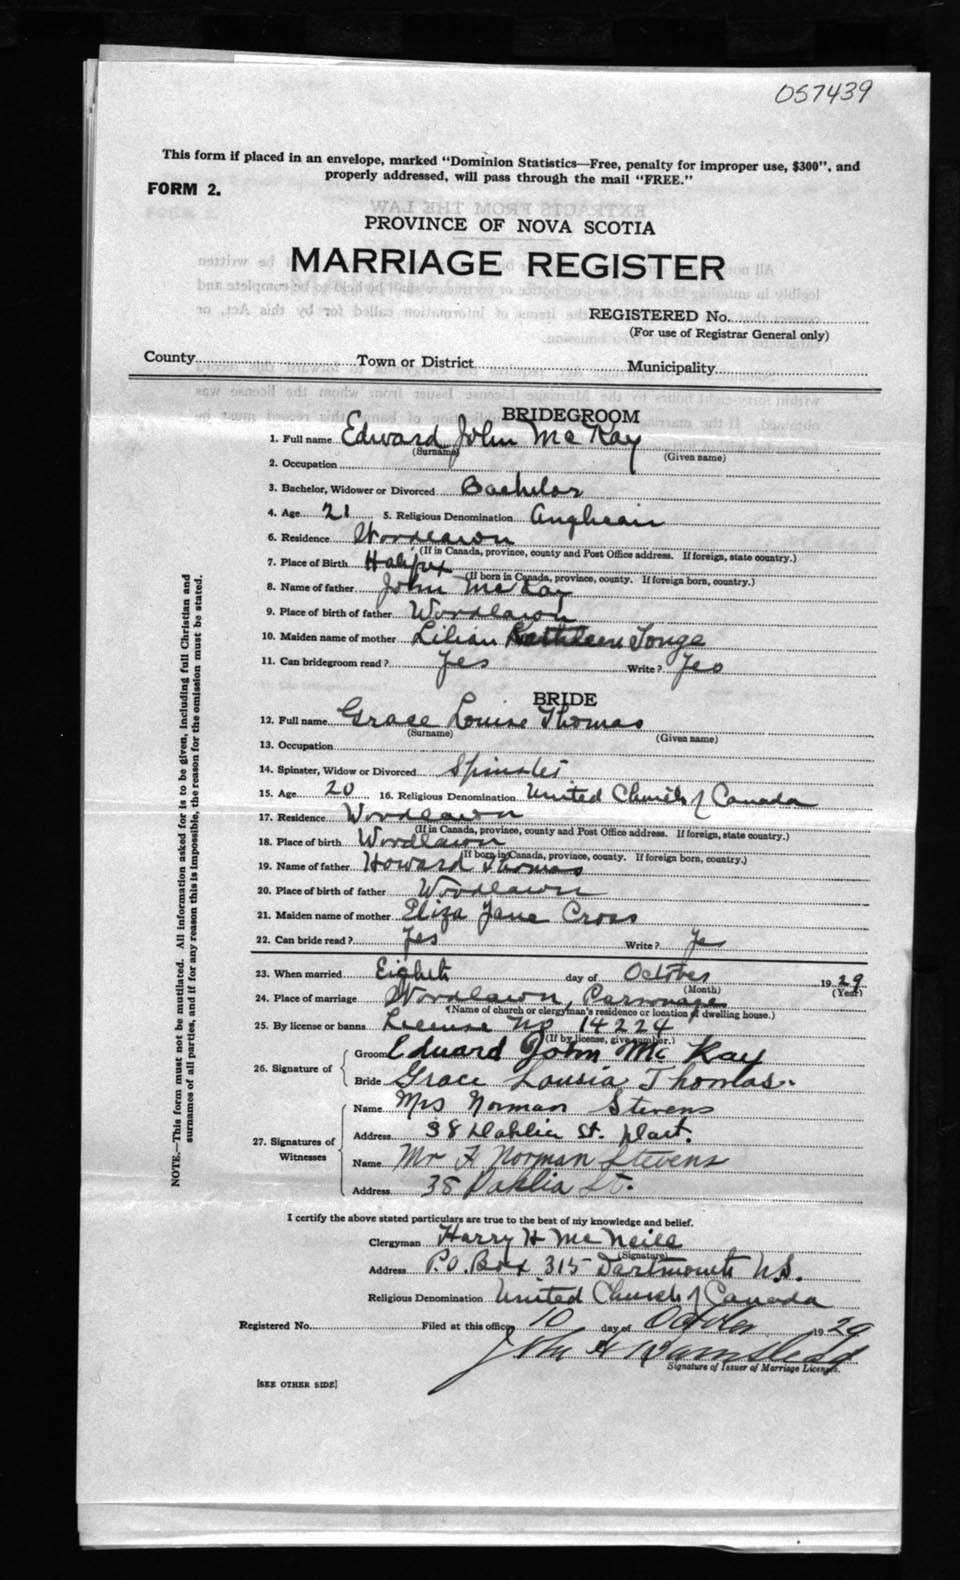 057439
This form if placed in an envelope, marked "Dominion Statistics—Free, penalty for improper use, $300", and
properly addressed, will pass through the mail "FREE."
FORM 2.
PROVINCE OF NOVA SCOTIA
MARRIAGE REGISTER
REGISTERED No.
(For use of Registrar General only)
County Town or District Municipality
BRIDEGROOM
1. Full name Edward John McKay
(Surname) (Given name)
2. Occupation
3. Bachelor, Widower or Divorced Bachelor
4. Age 21 5. Religious Denomination Anglican
6. Residence Woodlawn
(If in Canada, province, county and Post Office address. If foreign, state country.)
7. Place of Birth Halifax
(If born in Canada, province, county. If foreign born, country.)
8. Name of father John McKay
9. Place of birth of father Woodlawn
10. Maiden name of mother Lilian Kathleen Tonge
11. Can bridegroom read? Yes Write? Yes
BRIDE
12. Full name Grace Louise Thomas
(Surname) (Given name)
13. Occupation
14. Spinster, Widow or Divorced Spinster
15. Age 20 16. Religious Denomination United Church of Canada
17. Residence Woodlawn
(If in Canada, province, county and Post Office address. If foreign, state country.)
18. Place of birth Woodlawn
(If born in Canada, province, county. If foreign born, country.)
19. Name of father Howard Thomas
20. Place of birth of father Woodlawn
21. Maiden name of mother Eliza Jane Cross
22. Can bride read? Yes Write? Yes
23. When married Eighth day of October 1929
(Month) (Year)
24. Place of marriage Woodlawn, Parsonage
(Name of church or clergyman's residence or location of dwelling house.)
25. By license or banns License No 14224
(If by license, give number.)
26. Signature of Groom Edward John McKay
Bride Grace Lousia Thomas.
27. Signatures of Witnesses
Name Mrs Norman Stevens
Address 38 Dahlia St. Dart.
Name Mr F Norman Stevens
Address 38 Dahlia St.
NOTE.—This form must not be mutilated. All information asked for is to be given, including full Christian and
surnames of all parties, and if for any reason this is impossible, the reason for the omission must be stated.
I certify the above stated particulars are true to the best of my knowledge and belief.
Clergyman Harry H McNeill
(Signature)
Address P.O. Box 315 Dartmouth N.S.
Religious Denomination United Church of Canada
Registered No. Filed at this office 10 day of October 1929
John H
Signature of Issuer of Marriage Licenses.
[SEE OTHER SIDE]